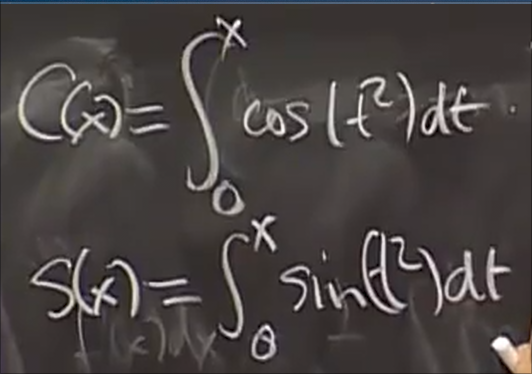 C(x) = ∫₀ˣ cos(t²)dt.
S(x) = ∫₀ˣ sin(t²)dt